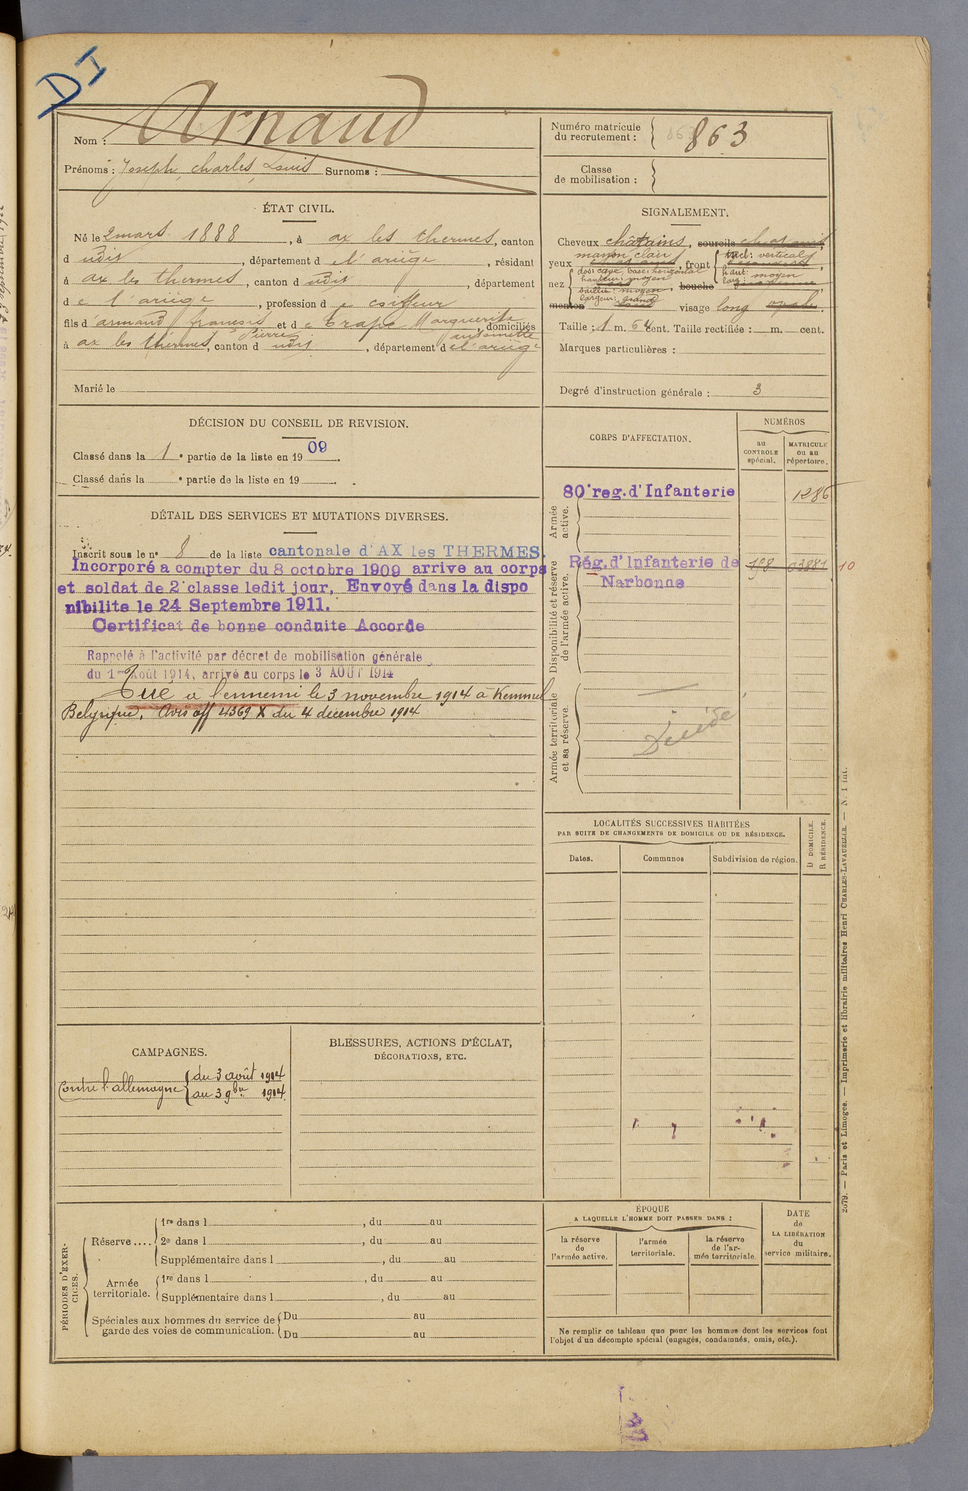 DI
Nom : Arnaud
Prénoms : Joseph, charles, Louis Surnoms :
Numéro matricule du recrutement : 863
Classe de mobilisation :
ÉTAT CIVIL.
Né le 2 mars 1888, à ax les thermes, canton
d udit, département d e l'ariège, résidant
à ax les thermes, canton d udit, département
d e l'ariège, profession d e coiffeur
fils d'armand françois pierre et d e Marguerite antoinette, domiciliés
à ax les thermes, canton d udit, département d e l'ariège
Marié le
SIGNALEMENT.
Cheveux châtains, sourcils
yeux marron clair, front incl: vertical haut: moyen larg: moyen
nez dos: cave base: horizontal hauteur: moyen saillie: moyen largeur: grand, bouche
menton visage long
Taille : 1 m. 64 cent. Taille rectifiée : m. cent.
Marques particulières :
Degré d'instruction générale : 3
DÉCISION DU CONSEIL DE REVISION.
Classé dans la 1e partie de la liste en 1909.
Classé dans la e partie de la liste en 19 .
DÉTAIL DES SERVICES ET MUTATIONS DIVERSES.
Inscrit sous le n° 8 de la liste cantonale d'AX les THERMES.
Incorporé a compter du 8 octobre 1909 arrive au corps
et soldat de 2e classe ledit jour. Envoyé dans la dispo
nibilite le 24 Septembre 1911.
Certificat de bonne conduite Accorde
Rappelé à l'activité par décret de mobilisation générale
du 1er Août 1914, arrivé au corps le 3 AOUT 1914
Tué a l'ennemi le 3 novembre 1914 a Kemmel
Belgique. Avis off 4369 X du 4 décembre 1914
CORPS D'AFFECTATION.
NUMÉROS
au CONTROLE spécial.
MATRICULE ou au répertoire.
Armée active.
80e reg. d'Infanterie 1286
Disponibilité et réserve de l'armée active.
Rég. d'Infanterie de 10
Narbonne
Armée territoriale et sa réserve.
Décédé
LOCALITÉS SUCCESSIVES HABITÉES
PAR SUITE DE CHANGEMENTS DE DOMICILE OU DE RÉSIDENCE.
Dates. Communes Subdivision de région. D DOMICILE. R RÉSIDENCE.
CAMPAGNES.
Contre l'allemagne du 3 août 1914
au 3 9bre 1914
BLESSURES, ACTIONS D'ÉCLAT,
DÉCORATIONS, ETC.
PÉRIODES D'EXERCICES.
Réserve .... 1re dans l , du au
2e dans l , du au
Supplémentaire dans l , du au
Armée territoriale. 1re dans l , du au
Supplémentaire dans l , du au
Spéciales aux hommes du service de garde des voies de communication. Du au
Du au
ÉPOQUE
A LAQUELLE L'HOMME DOIT PASSER DANS :
la réserve de l'armée active.
l'armée territoriale.
la réserve de l'armée territoriale.
DATE de LA LIBÉRATION du service militaire.
Ne remplir ce tableau que pour les hommes dont les services font
l'objet d'un décompte spécial (engagés, condamnés, omis, etc.).
2079. — Paris et Limoges. — Imprimerie et librairie militaires Henri CHARLES-LAVAUZELLE. — N. 1 int.